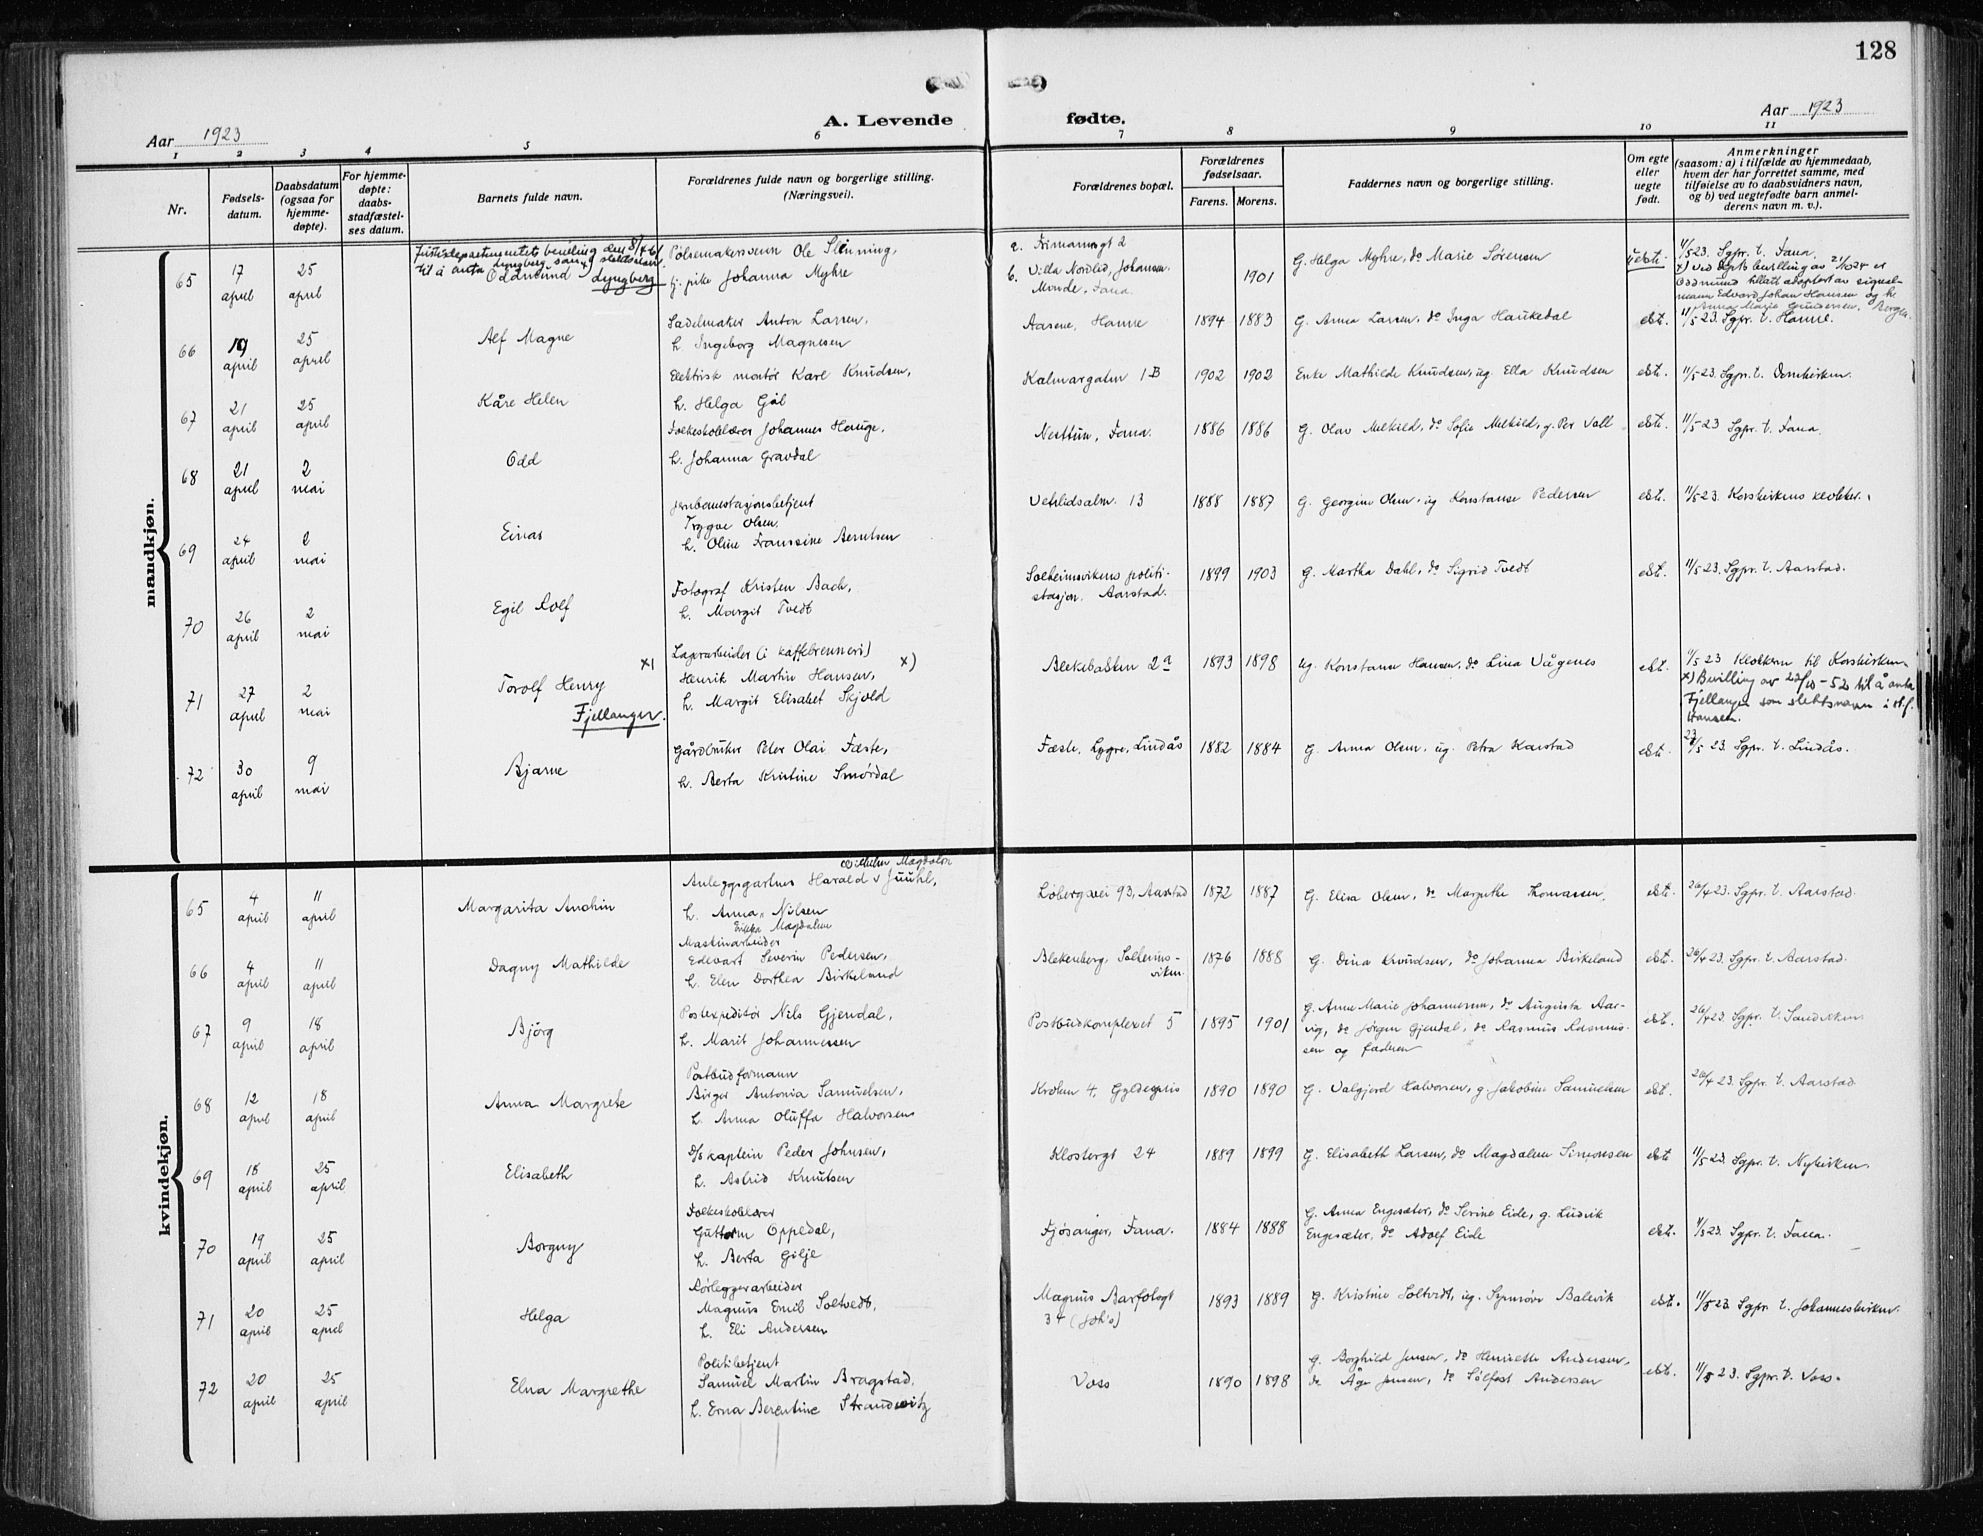 128
Aar 1923
A. Levende fødte.
Aar 1923
1 2 3 4 5 6 7 8 9 10 11
Nr.
Fødsels-
datum.
Daabsdatum
(ogsaa for
hjemme-
døpte).
For hjemme-
døpte:
daabs-
stadfæstel-
ses datum.
Barnets fulde navn.
Forældrenes fulde navn og borgerlige stilling.
(Næringsvei).
Forældrenes bopæl.
Forældrenes
fødselsaar.
Farens. Morens.
Faddernes navn og borgerlige stilling.
Om egte
eller
uegte
født.
Anmerkninger
(saasom: a) i tilfælde av hjemmedaab,
hvem der har forrettet samme, med
tilføielse av to daabsvidners navn,
og b) ved uegtefødte barn anmel-
derens navn m. v.).
mandkjøn.
65
17
april
25
april
Justisdepartementets bevilling den 8/4 46
til å anta Lyngberg som slektsnavn
Oddmund Lyngberg
Pølsemakersvenn Ole Slenning,
f. pike Johanna Myhre
a.
b. Villa Nordlid, Johansen.
Minde, Fana.
1901
G. Helga Myhre, do Marie Sørensen
uekte.
11/5 23. Sgpr. t. Fana.
x) Ved Depts bevilling av 21/10 24 er
Oddmund tillatt adoptert av signal-
mann Edvard Johan Hansen og h.
Anna Marie Gundersen, Bergen.
66
19
april
25
april
Alf Magne
Sadelmaker Anton Larsen,
h. Ingeborg Magnesen
Aasene, Hamre
1894 1883
G. Anna Larsen, do Inga Haukedal
ekte.
11/5 23. Sgpr. t. Hamre.
67
21
april
25
april
Kåre Helen
Elektrisk montør Karl Knudsen,
h. Helga Gål
Kalmargaten 1B
1902 1902
Enke Mathilde Knudsen, ug. Ella Knudsen
ekte.
11/5 23. Sgpr. t. Domkirken.
68
21
april
2
mai
Odd
Folkeskolelærer Johannes Hauge,
h. Johanna Gravdal
Nesttun, Fana.
1886 1886
G. Olav Melkild, do Sofie Melkild, g. Per Vall
ekte.
11/5 23 Sgpr. t. Fana.
69
24
april
2
mai
Einar
Jernbanestasjonsbetjent
Trygve Olsen,
h. Oline Franssine Berntsen
Vetrlidsalm. 13
1888 1887
G. Georgine Olsen, ug Konstanse Pedersen
ekte.
11/5 23. Korskirkens klokker.
70
26
april
2
mai
Egil Rolf
Fotograf Kristen Bach,
h. Margit Tvedt
Solheimsvikens politi-
stasjon. Aarstad.
1899 1903
G. Martha Dahl, do Sigrid Tvedt
ekte.
11/5 23. Sgpr. t. Aarstad.
71
27
april
2
mai
x)
Torolf Henry
Fjellanger.
Lagerarbeider (i kaffebrenneri) x)
Henrik Martin Hansen,
h. Margit Elisabet Skjold
Blekebakken 2a
1893 1898
Ug. Konstanse Hansen, do Lina Vågenes
ekte.
11/5 23 Klokkern til Korskirken
x) Bevilling av 22/10 - 52 til å anta
Fjellanger som slektsnavn i st. f.
Hansen.
72
30
april
9
mai
Bjarne
Gårdbruker Peter Olai Fæste,
h. Berta Kristine Smørdal
Fæste, Lygre, Lindås
1882 1884
G. Anna Olsen, ug. Petra Karstad
ekte.
23/5 23. Sgpr. t. Lindås.
kvindekjøn.
65
4
april
11
april
Margarita Anchin
Wilhelm Magdalon
Anleggsgartner Harald v Juuhl,
h. Anna Nilsen
Erikka Magdalene
Løbergsvei 93, Aarstad
1872 1887
G. Elisa Olsen, do Margrethe Thomassen.
ekte.
26/4 23. Sgpr. t. Aarstad.
66
4
april
11
april
Dagny Mathilde
Maskinarbeider
Edevart Severin Pedersen,
h. Elen Dorthea Birkeland
Blekenberg, Solheims-
viken.
1876 1888
G. Dina Knudsen, do Johanna Birkeland
ekte.
26/4 23. Sgpr. t. Aarstad.
67
9
april
18
april
Bjørg
Postexpeditør Nils Gjendal,
h. Marit Johannessen
Postbudkomplexet 5
1895 1901
G. Anne Marie Johannessen, do Augusta Aar-
vig, do Jørgen Gjendal, do Rasmus Rasmus-
sen og faderen
ekte.
26/4 23. Sgpr. t. Sandviken
68
12
april
18
april
Anna Margrete
Postbudformann
Birger Antonia Samuelsen,
h. Anna Oluffa Halvorsen
Kroken 4, Gyldenpris
1890 1890
G. Valgjerd Halvorsen, g. Jakobine Samuelsen
ekte.
26/4 23. Sgpr. t. Aarstad
69
18
april
25
april
Elisabeth
D/S kaptein Peder Johnsen,
h. Astrid Knutsen
Klostergt 24
1889 1899
G. Elisabeth Larsen, do Magdalene Simonsen
ekte
11/5 23. Sgpr. t. Nykirken.
70
19
april
25
april
Borgny
Folkeskolelærer
Guttorm Oppedal,
h. Berta Gilje
Fjøsanger, Fana.
1884 1888
G. Anna Engesæter, do Serine Eide, g. Ludvik
Engesæter, do Adolf Eide
ekte.
11/5 23. Sgpr. t. Fana.
71
20
april
25
april
Helga
Rørleggerarbeider
Magnus Emil Soltvedt,
h. Eli Andersen
Magnus Barfotsgt
34 (Joh's)
1893 1889
G. Kristine Soltvedt, ug. Synnøve Balevik
ekte.
11/5 23. Sgpr. t. Johanneskirken.
72
20
april
25
april
Elna Margrethe
Politibetjent
Samuel Martin Bragstad,
h. Erna Berentine Strandwitz
Voss
1890 1898
G. Borghild Jensen, do Henriette Andersen,
do Åge Jensen, do Sølfest Andersen
ekte.
11/5 23. Sgpr. t. Voss.